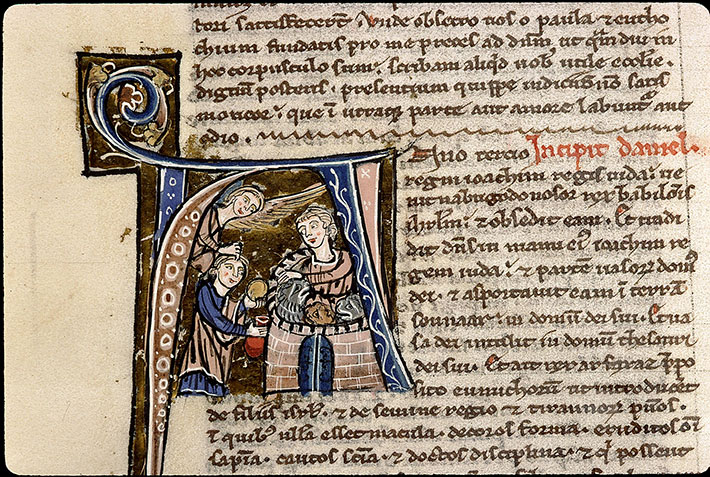 tori satisfecerēt. Unde obsecro uos o paula & eusto
chium fundatis pro me preces ad dn̄m. ut qm̄ diu in
hoc corpusculo sum. scribam aliqd uobis utile eccłie.
dignū posteris. presentium quippe iudiciis nō satis
moueor. que ī utraqꝫ parte aut amore labunt aut
odio.
Anno tercio Incipit daniel.
regni ioachim regis iuda. ue
nit nabugodonosor rex babilonis
ihrl̄m. & obsedit eam. Et tradi
dit dn̄s in manu eiꝰ ioachim re
gem iuda. & partē uasorꝝ domꝰ
dei. & asportauit eam ī terrā
sennaar. in domū dei sui. Et ua
sa dei intulit in domū thesauri
dei sui. Et ait rex asfanaz p̄po
sito eunuchorū ut introducet
de filiis isrł. & de semine regio & tirannorꝝ pu̅os.
ī quibꝰ ulla esset macula. decoros forma. eruditos oī
sap̄ia. cautos scīa. & doctos disciplina. & qi possent